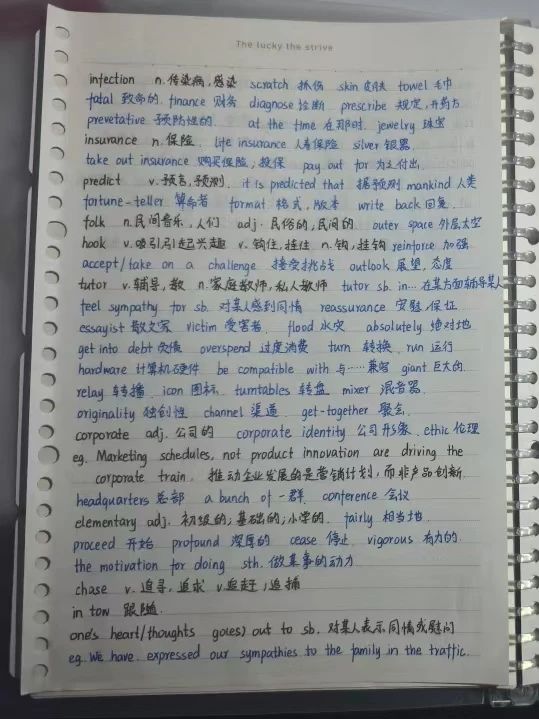 The lucky the strive
infection n. 传染病,感染 scratch 抓伤 skin 皮肤 towel 毛巾
fatal 致命的. finance 财务 diagnose 诊断 prescribe 规定,开药方
prevetative 预防性的. at the time 在那时. jewelry 珠宝
insurance n. 保险. life insurance 人寿保险 silver 银器.
take out insurance 购买保险;投保 pay out for 为之付出.
predict v. 预言,预测. it is predicted that 据预测 mankind 人类
fortune-teller 算命者 format 格式,版本 write back 回复.
folk n. 民间音乐,人们 adj. 民俗的,民间的 outer space 外层太空
hook v. 吸引,引起兴趣 v. 钩住,挂住 n. 钩,挂钩 reinforce 加强.
accept/take on a challenge 接受挑战 outlook 展望,态度
tutor v. 辅导,教 n. 家庭教师,私人教师 tutor sb. in… 在某方面辅导某人
feel sympathy for sb. 对某人感到同情 reassurance 安慰,保证
essayist 散文家 victim 受害者. flood 水灾 absolutely 绝对地
get into debt 欠债 overspend 过度消费 turn 转换. run 运行
hardware 计算机硬件 be compatible with 与……兼容 giant 巨大的.
relay 转播. icon 图标. turntables 转盘 mixer 混音器.
originality 独创性 channel 渠道 get-together 聚会.
corporate adj. 公司的 corporate identity 公司形象. ethic 伦理
eg. Marketing schedules, not product innovation are driving the
corporate train. 推动企业发展的是营销计划,而非产品创新.
headquarters 总部 a bunch of 一群. conference 会议
elementary adj. 初级的;基础的;小学的. fairly 相当地.
proceed 开始 profound 深厚的 cease 停止. vigorous 有力的.
the motivation for doing sth. 做某事的动力
chase v. 追寻,追求 v. 追赶;追捕
in tow 跟随.
one's heart/thoughts go(es) out to sb. 对某人表示同情或慰问
eg. We have expressed our sympathies to the family in the traffic.